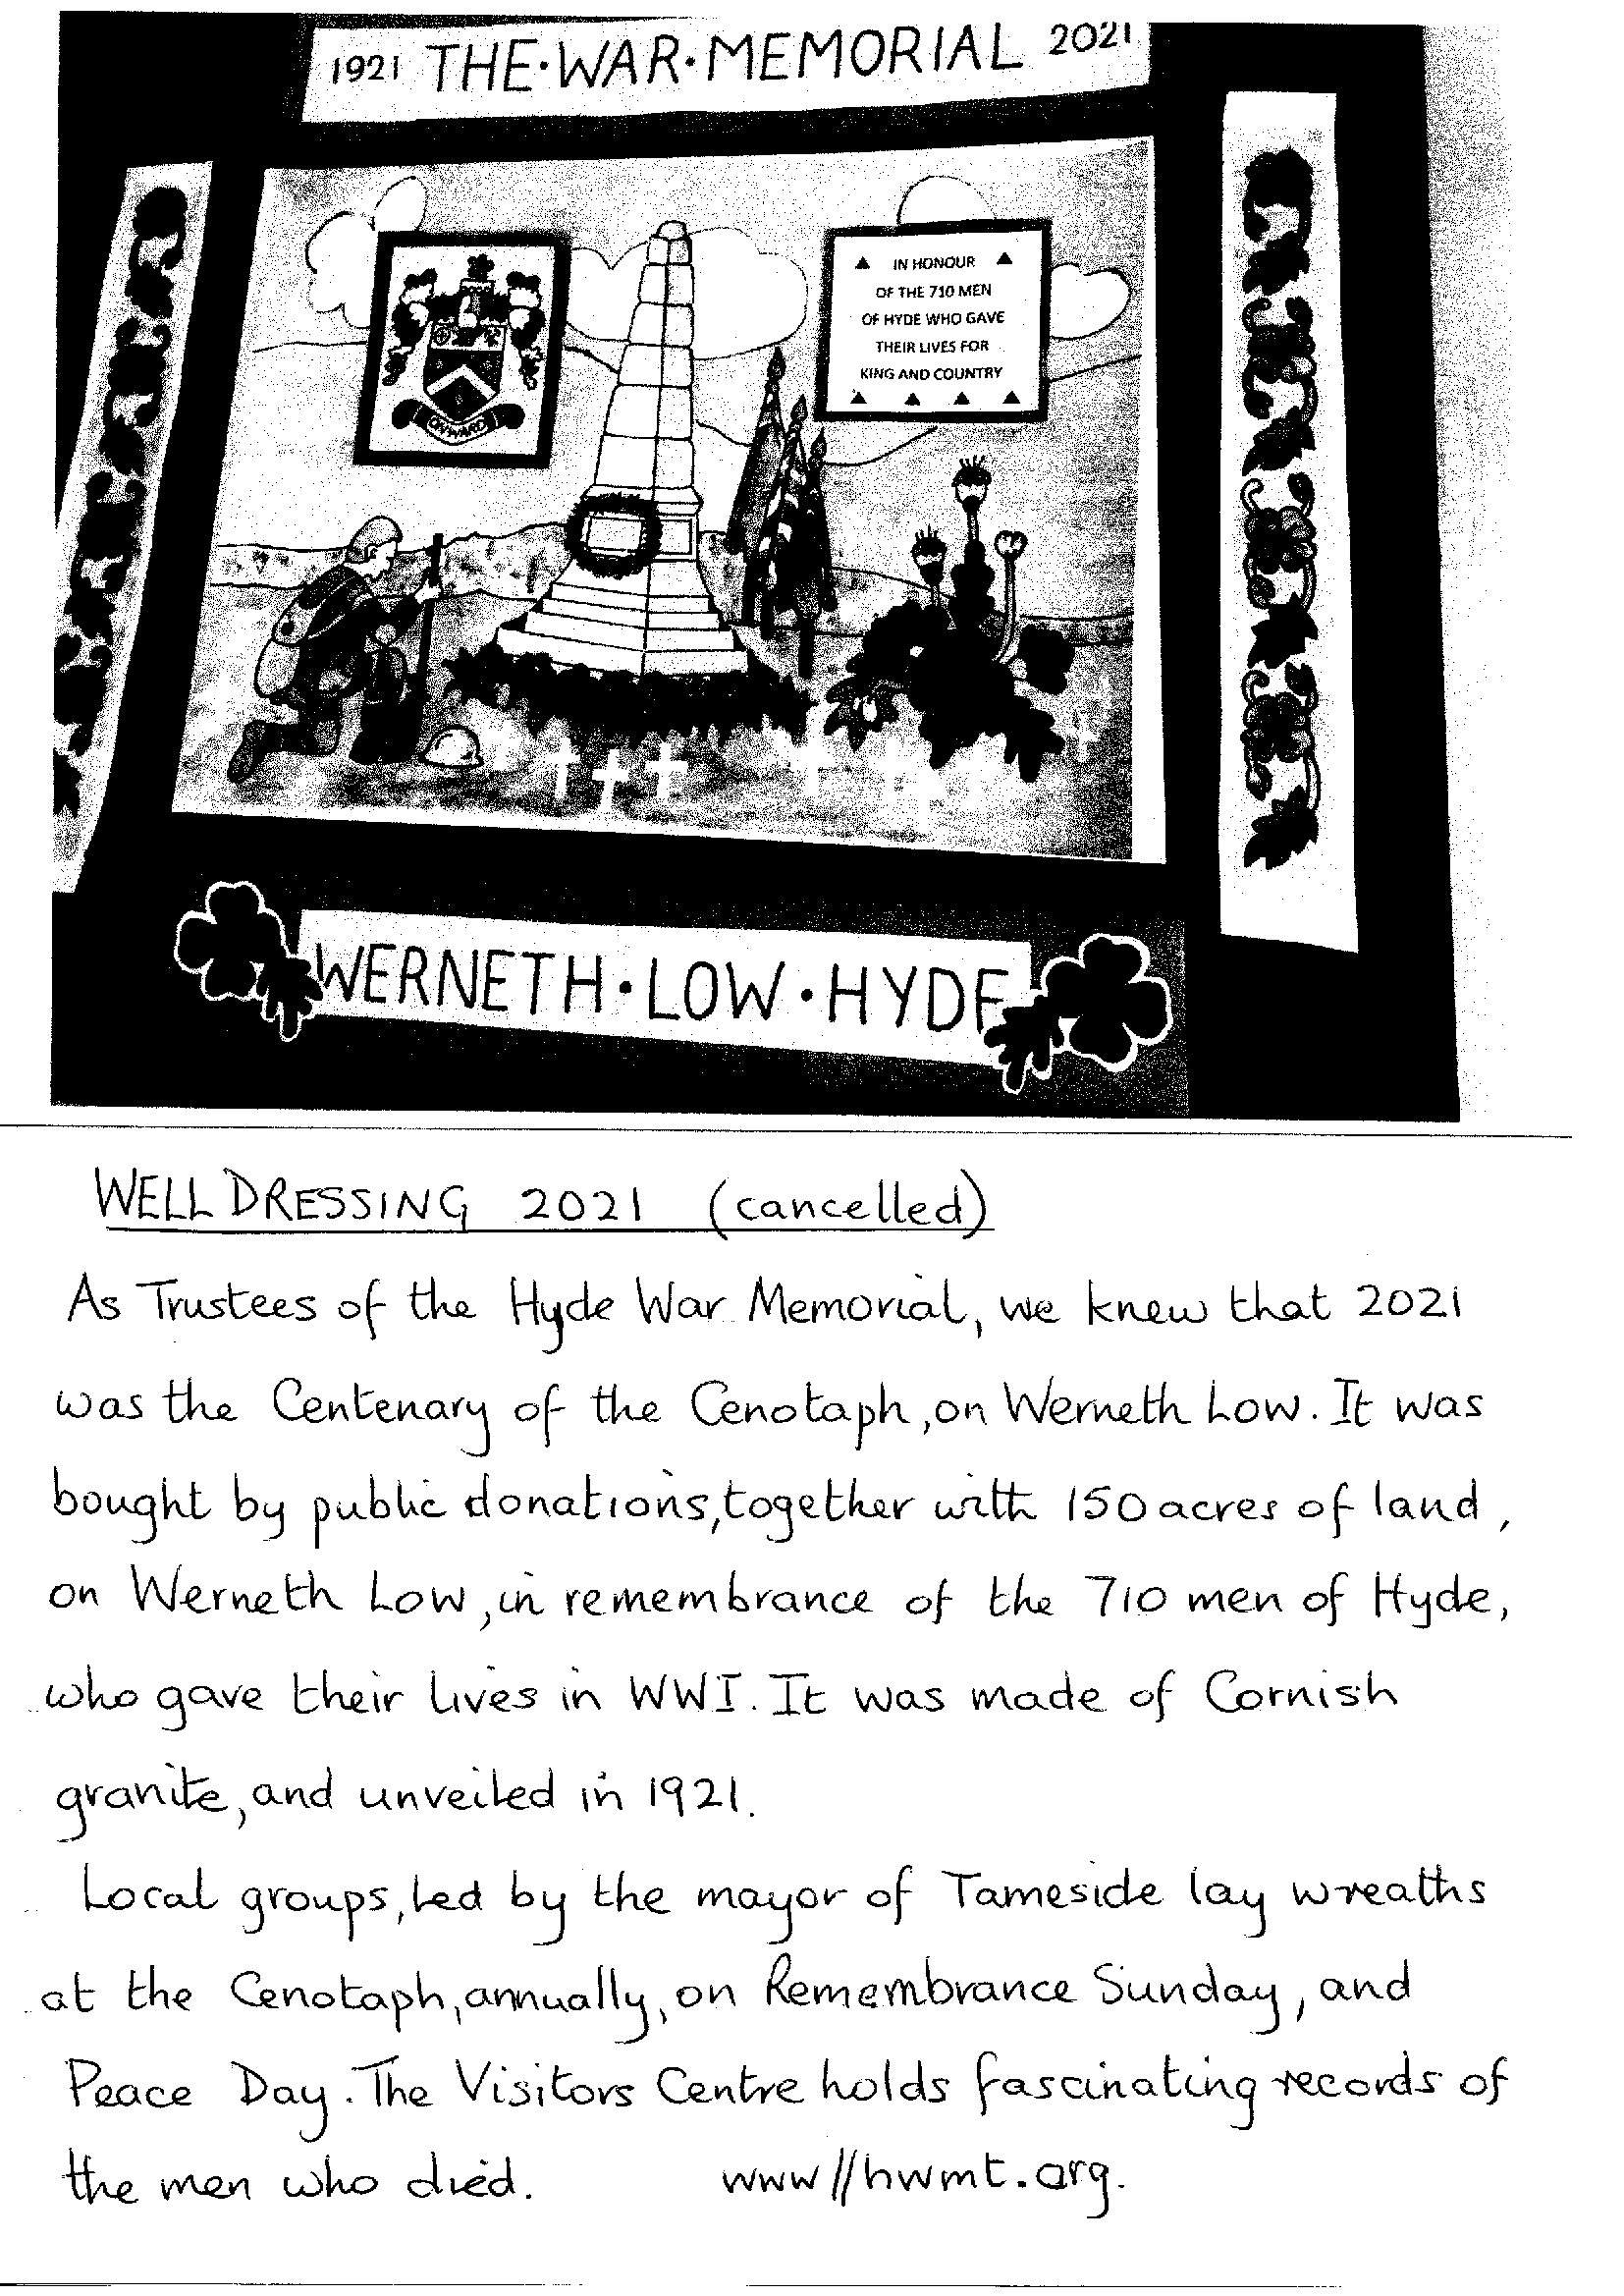 1921 THE·WAR·MEMORIAL 2021
ONWARD
IN HONOUR
OF THE 710 MEN
OF HYDE WHO GAVE
THEIR LIVES FOR
KING AND COUNTRY
WERNETH·LOW·HYDE
WELL DRESSING 2021 (cancelled)
As Trustees of the Hyde War Memorial, we knew that 2021
was the Centenary of the Cenotaph, on Werneth Low. It was
bought by public donations, together with 150 acres of land,
on Werneth Low, in remembrance of the 710 men of Hyde,
who gave their lives in WWI. It was made of Cornish
granite, and unveiled in 1921.
Local groups, led by the mayor of Tameside lay wreaths
at the Cenotaph, annually, on Remembrance Sunday, and
Peace Day. The Visitors Centre holds fascinating records of
the men who died. www//hwmt.org.